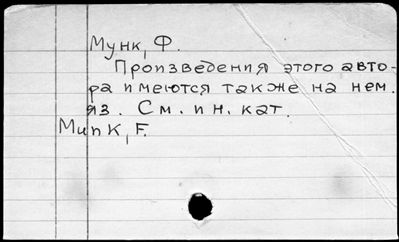 Мунк, Ф.
Произведения этого авто-
ра имеются также на нем.
яз. См. ин. кат.
Munk, F.